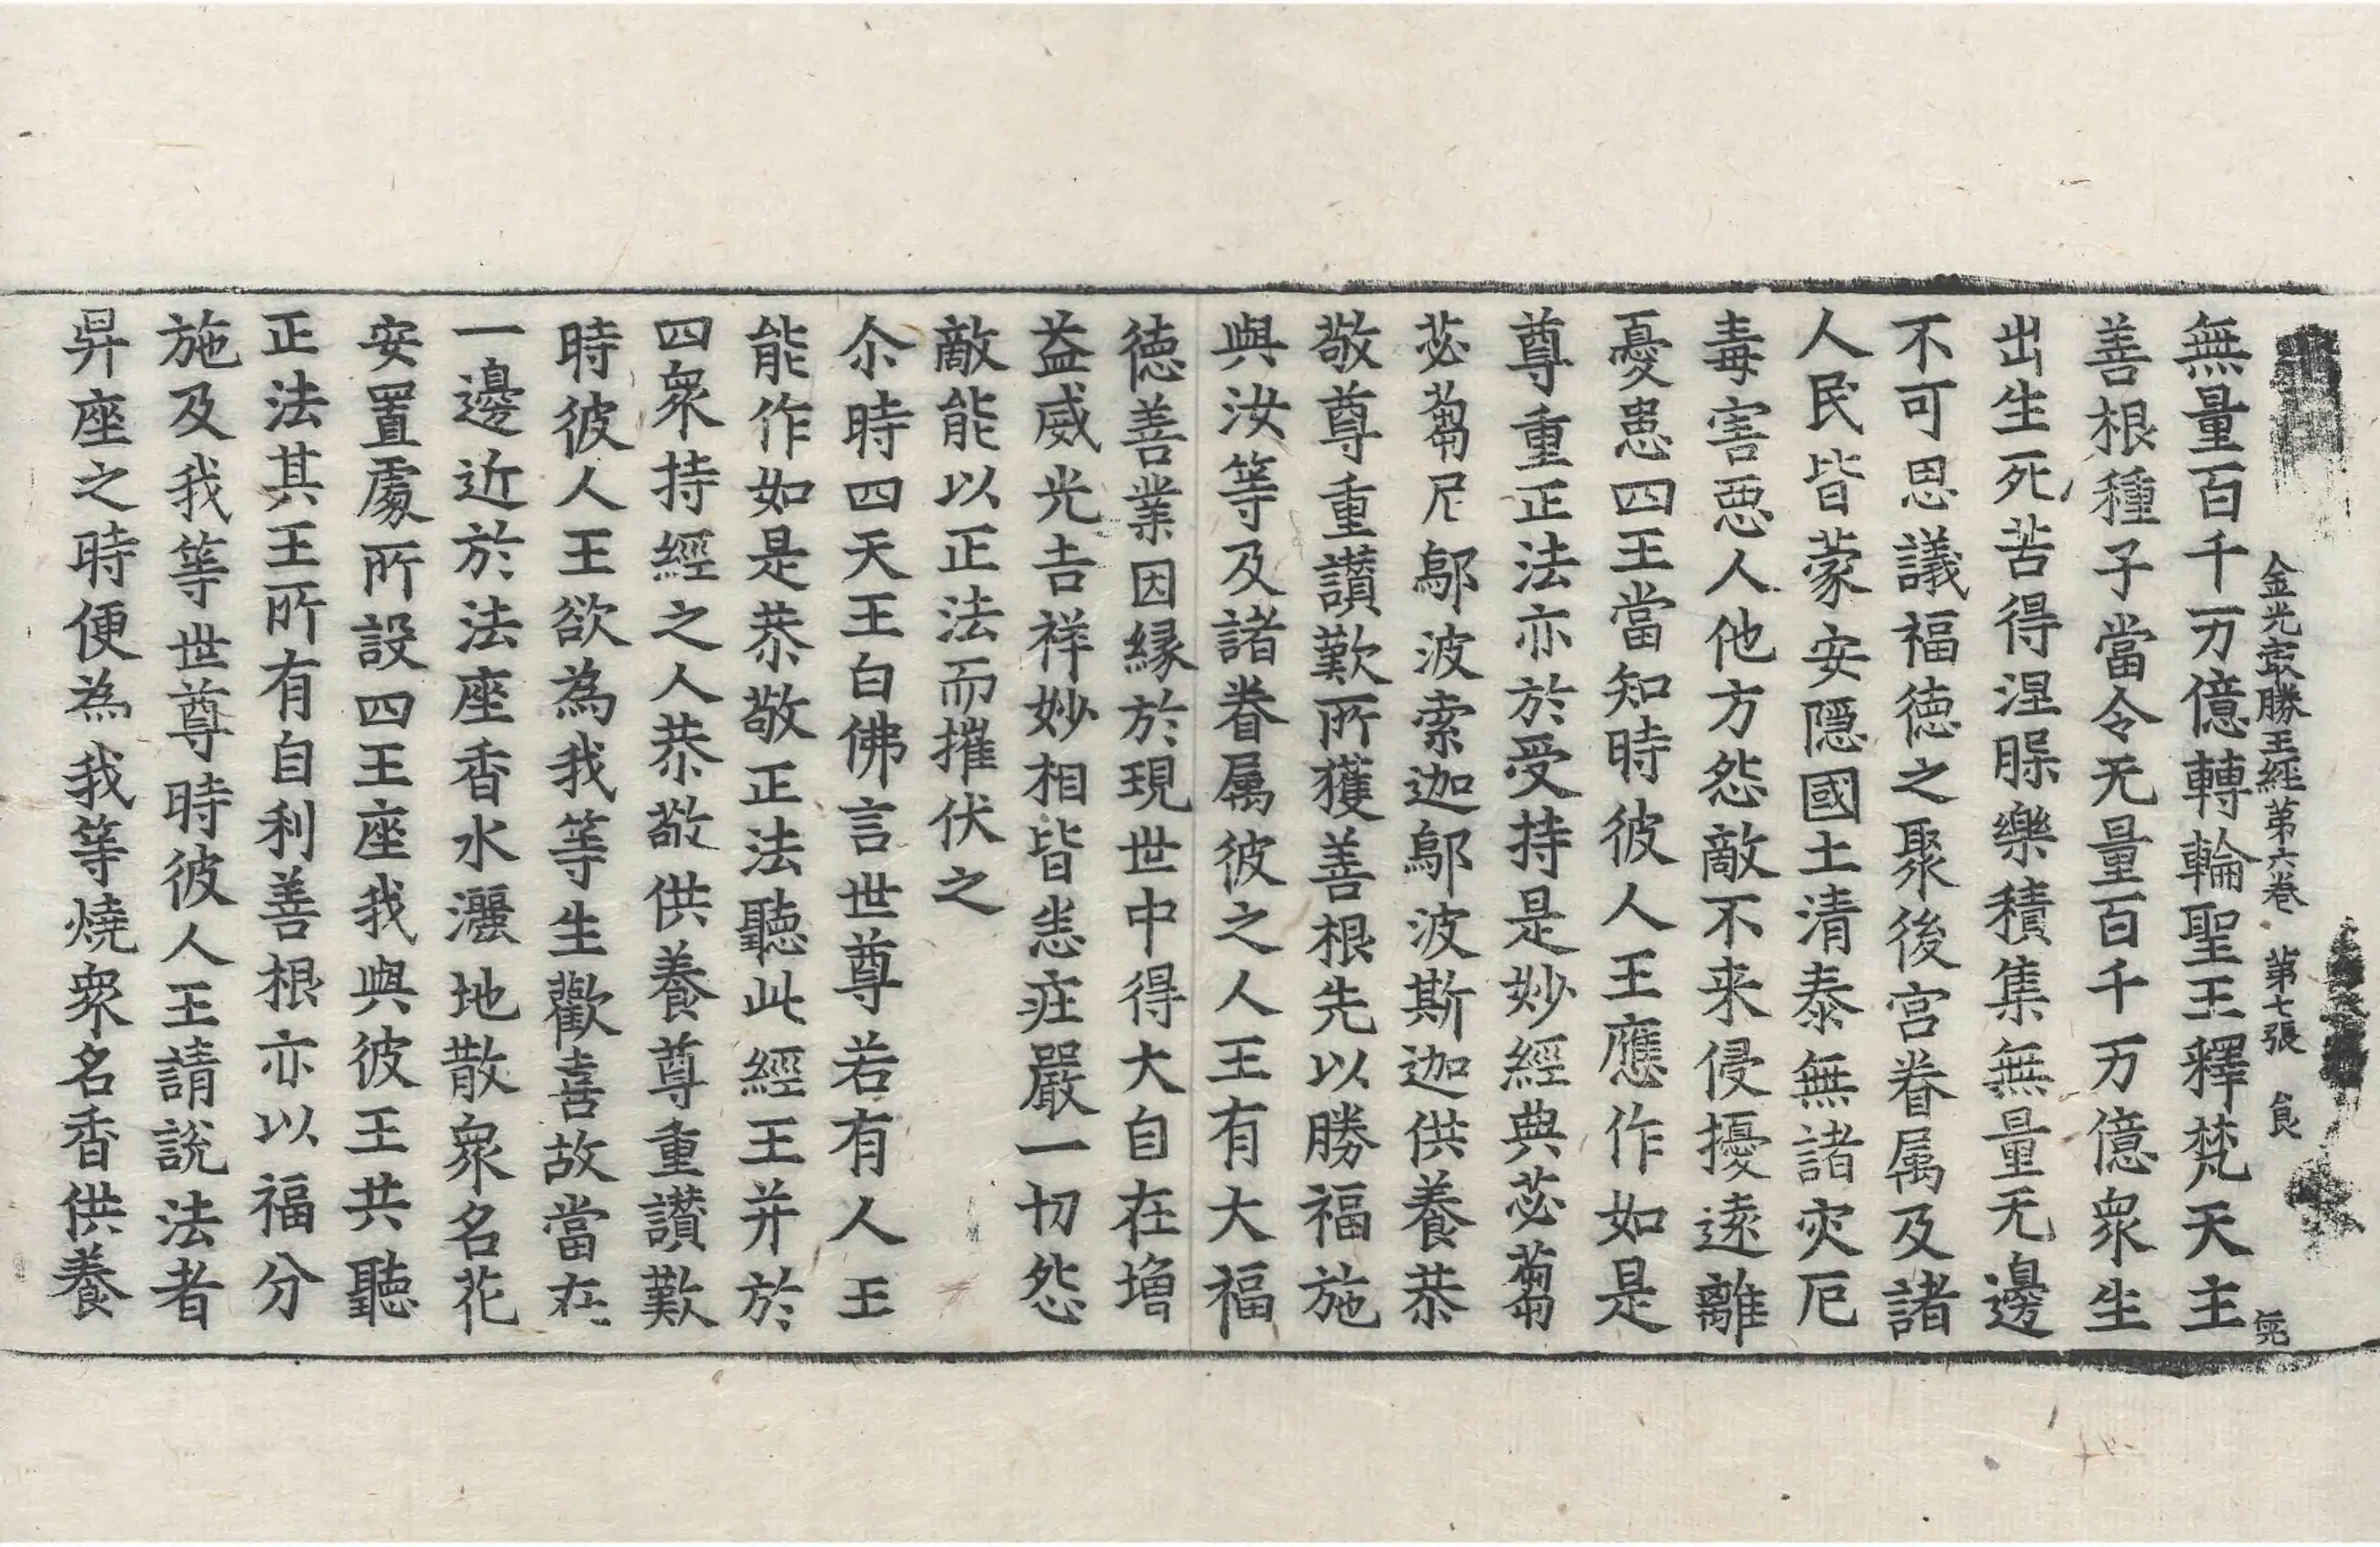 金光㝡勝王經第六卷 第七張 良
無量百千万億轉輪聖王釋梵天主
善根種子當令无量百千万億衆生
出生死苦得涅槃樂積集無量无邊
不可思議福德之聚後宮眷属及諸
人民皆蒙安隱國土清泰無諸灾厄
毒害惡人他方怨敵不来侵擾遠離
憂患四王當知時彼人王應作如是
尊重正法亦於受持是妙經典苾蒭
苾蒭尼鄔波索迦鄔波斯迦供養恭
敬尊重讃歎所獲善根先以勝福施
與汝等及諸眷属彼之人王有大福
德善業因縁於現世中得大自在增
益威光吉祥妙相皆悉疰嚴一切怨
敵能以正法而摧伏之
尒時四天王白佛言世尊若有人王
能作如是恭敬正法聽此經王并於
四衆持經之人恭敬供養尊重讃歎
時彼人王欲為我等生歡喜故當在
一邊近於法座香水灑地散衆名花
安置處所設四王座我與彼王共聽
正法其王所有自利善根亦以福分
施及我等世尊時彼人王請說法者
昇座之時便為我等燒衆名香供養